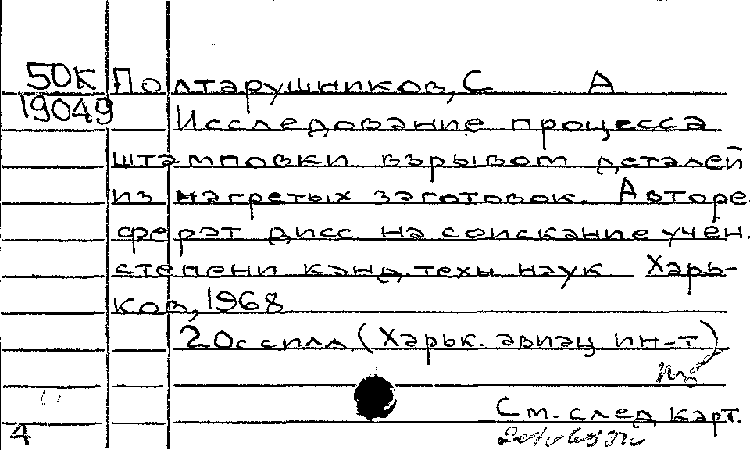 50К Полтарушников, С А
19049
Исследование процесса
штамповки взрывом деталей
из нагретых заготовок. Авторе
ферат дисс на соискание учен.
степени канд. техн наук Харь-
ков, 1968
20с силл (Харьк. авиац ин-т)
См. след карт.
4